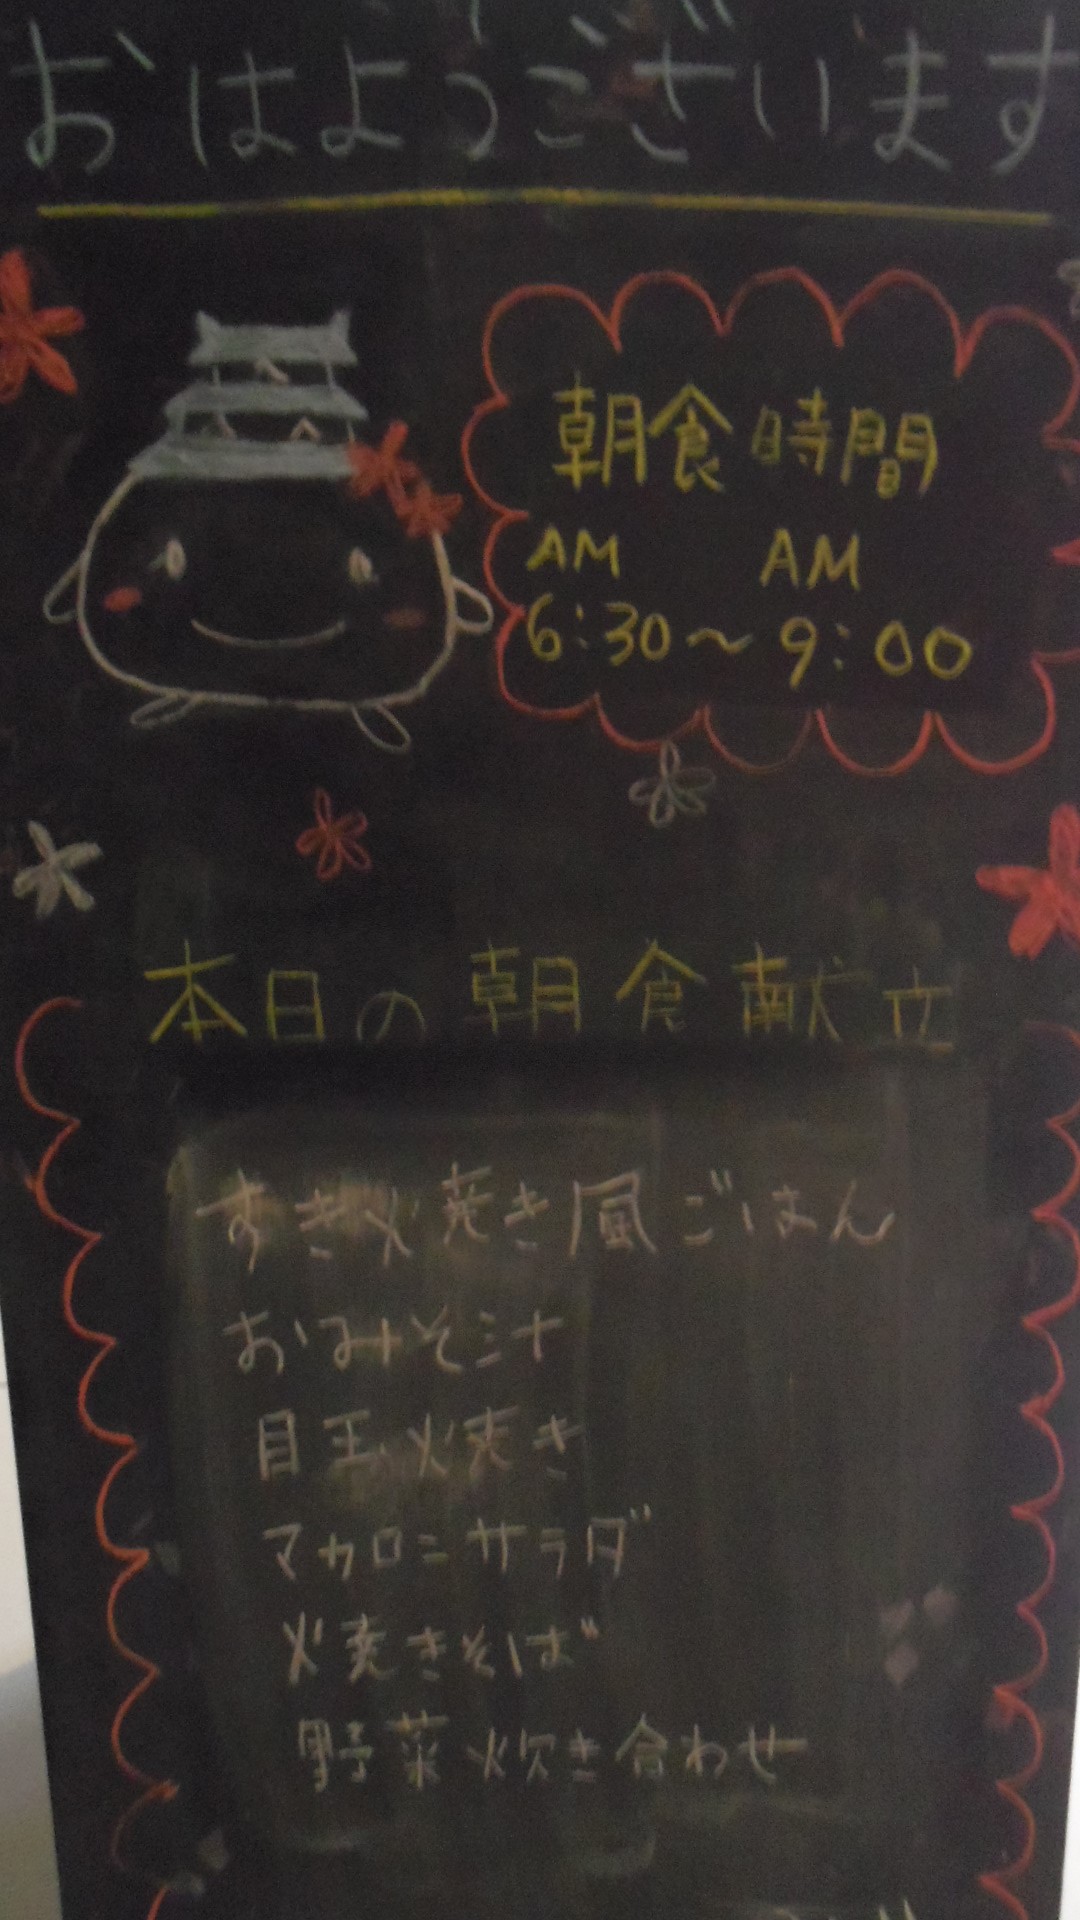 おはようございます
朝食時間
AM AM
6:30～9:00
本日の朝食献立
すき焼き風ごはん
おみそ汁
目玉焼き
マカロニサラダ
焼きそば
野菜炊き合わせ